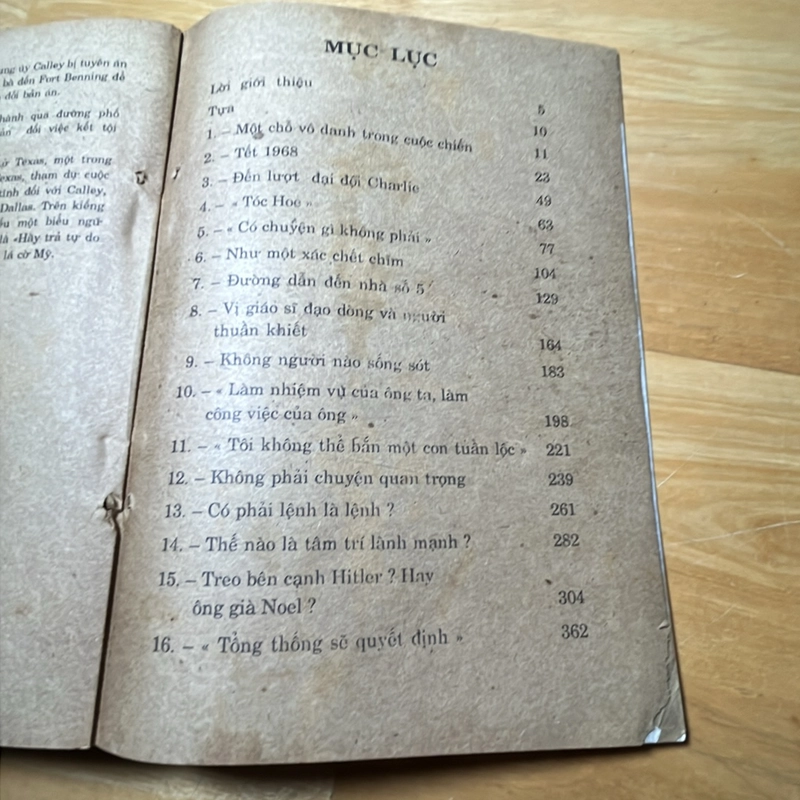 ưng úy Calley bị tuyên án
bà đến Fort Benning để
đổi bản án.
hành qua đường phố
đối việc kết tội
Texas, một trong
exas, tham dự cuộc
tình đối với Calley,
Dallas. Trên kiếng
một biểu ngữ
là «Hãy trả tự do
lá cờ Mỹ.
MỤC LỤC
Lời giới thiệu
Tựa 5
1. – Một chỗ vô danh trong cuộc chiến 10
2. – Tết 1968 11
3. – Đến lượt đại đội Charlie 23
4. – « Tóc Hoe » 49
5. – « Có chuyện gì không phải » 63
6. – Như một xác chết chìm 77
7. – Đường dẫn đến nhà số 5 104
8. – Vị giáo sĩ đạo dòng và người 129
thuần khiết
164
9. – Không người nào sống sót 183
10. – « Làm nhiệm vụ của ông ta, làm
công việc của ông » 198
11. – « Tôi không thể bắn một con tuần lộc » 221
12. – Không phải chuyện quan trọng 239
13. – Có phải lệnh là lệnh ? 261
14. – Thế nào là tâm trí lành mạnh ? 282
15. – Treo bên cạnh Hitler ? Hay
ông già Noel ? 304
16. – « Tổng thống sẽ quyết định » 362